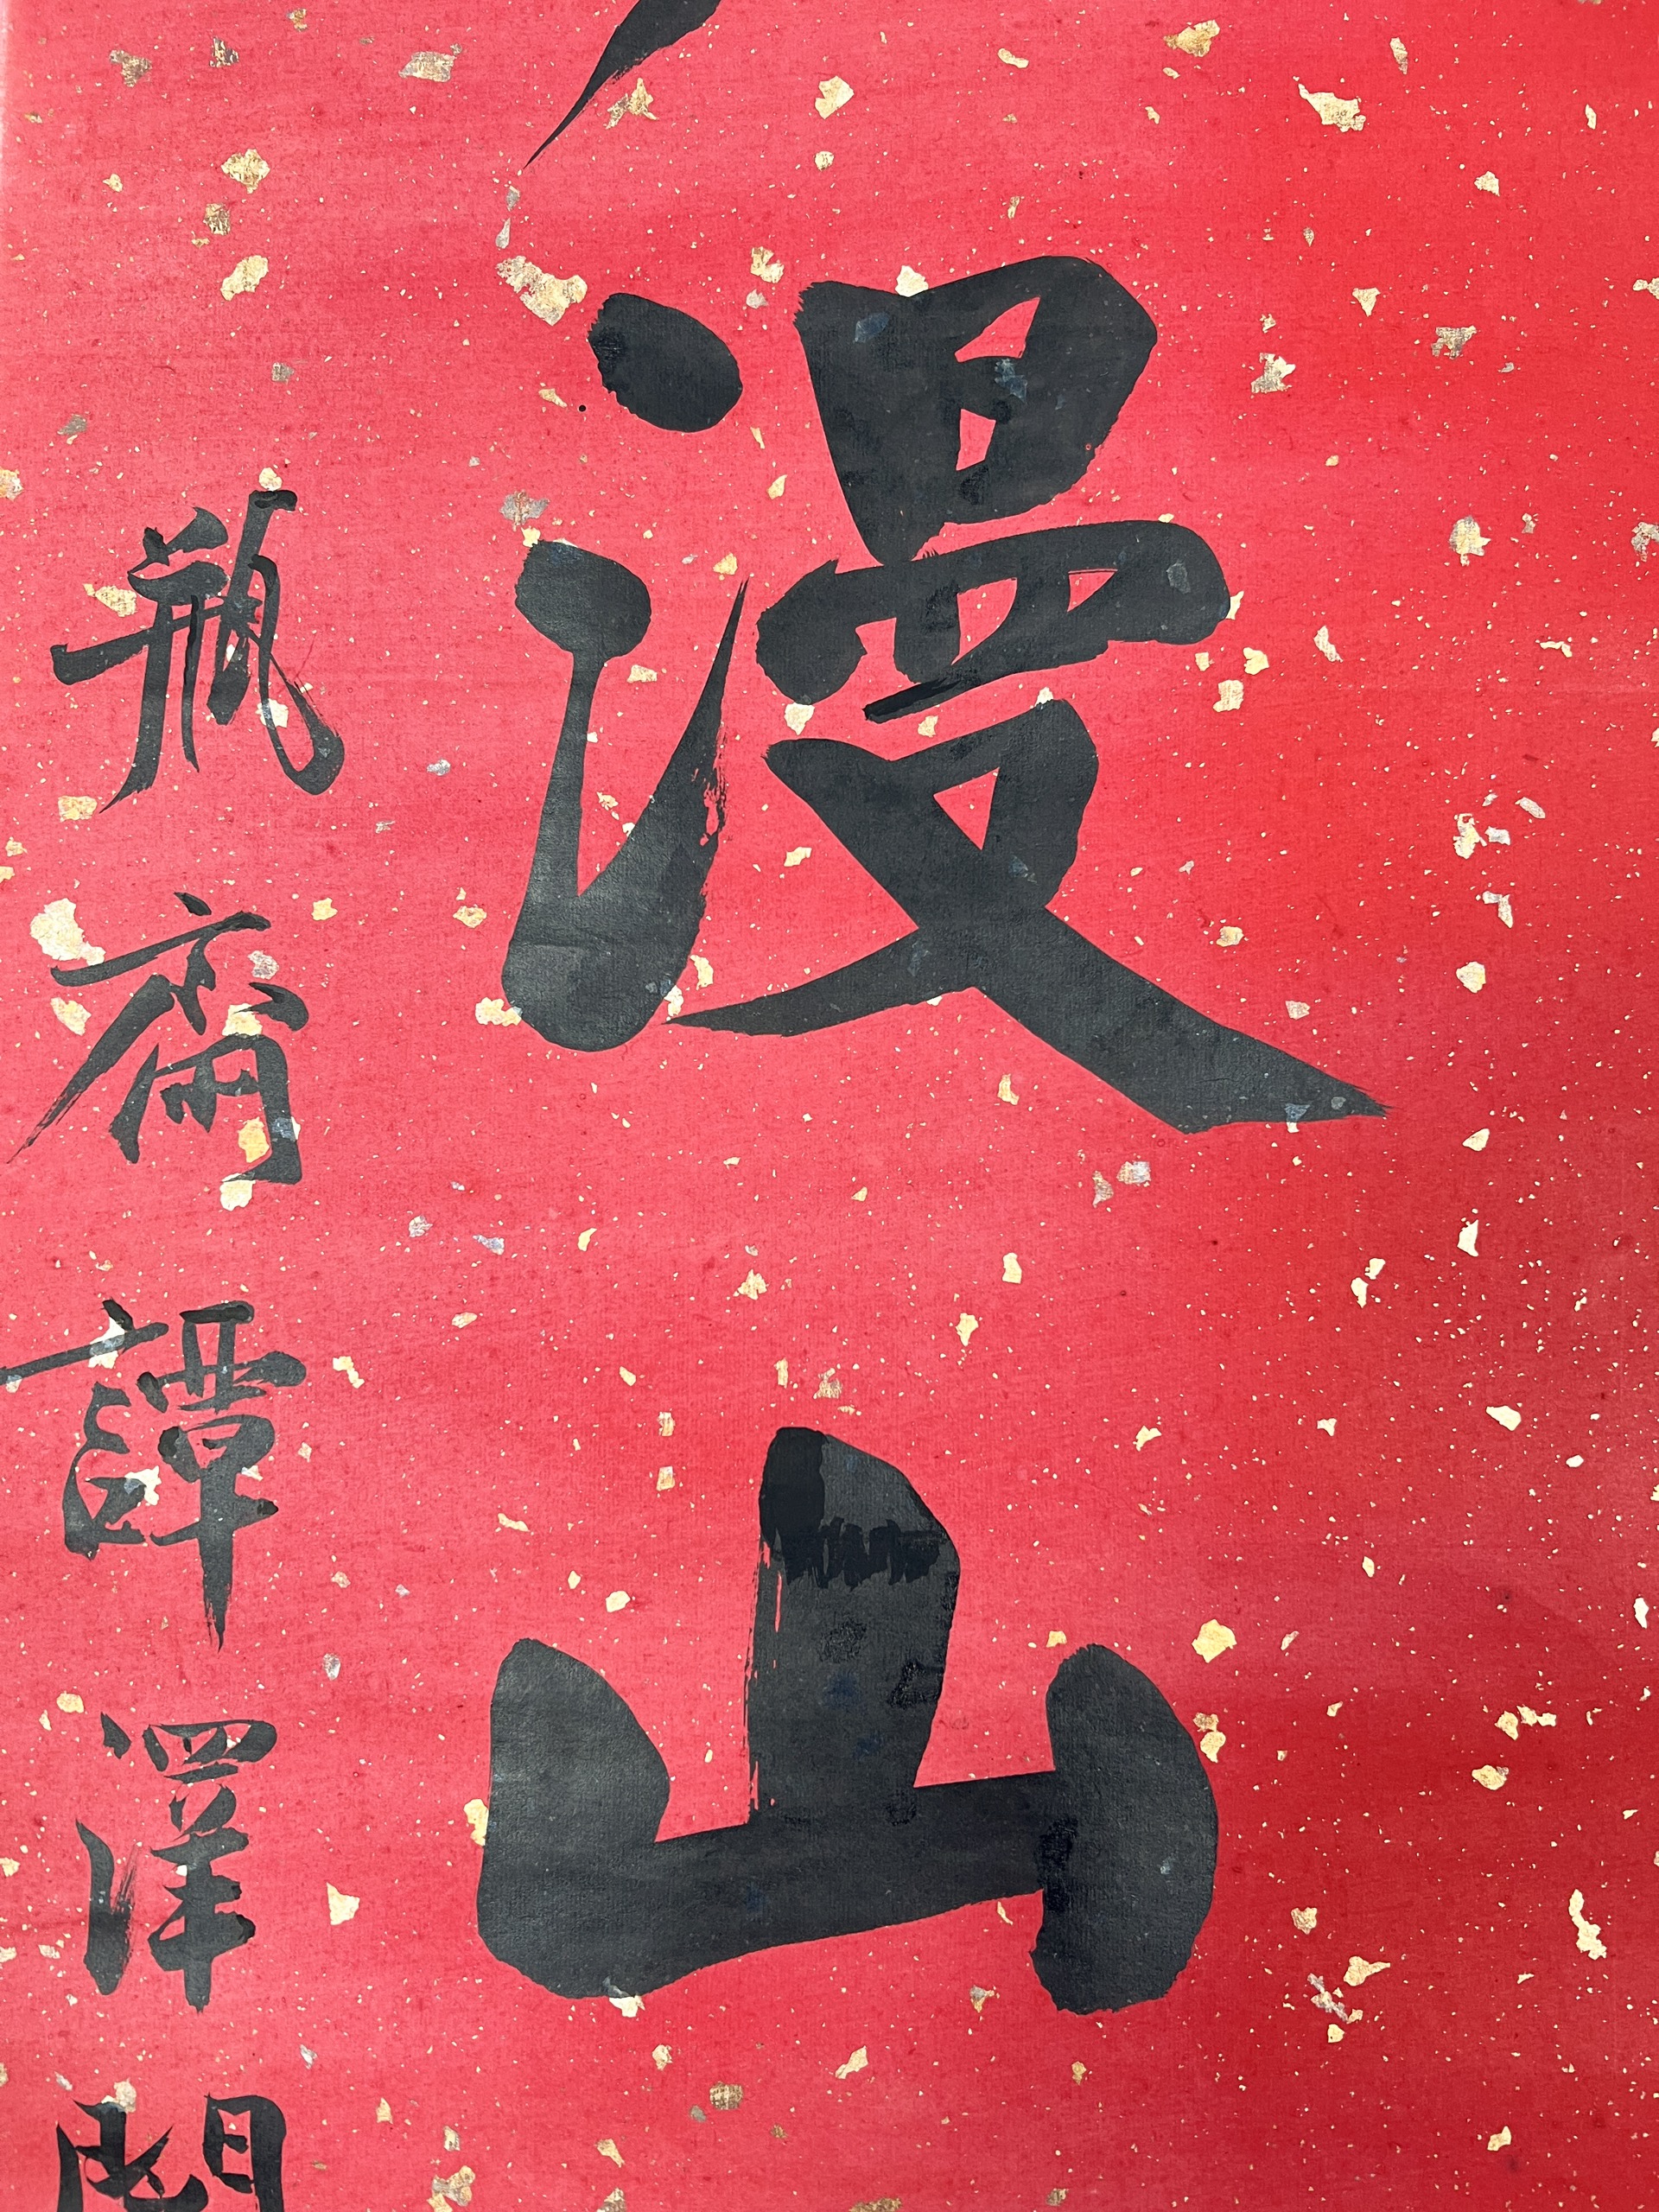 漫山
瓶齋譚澤闓